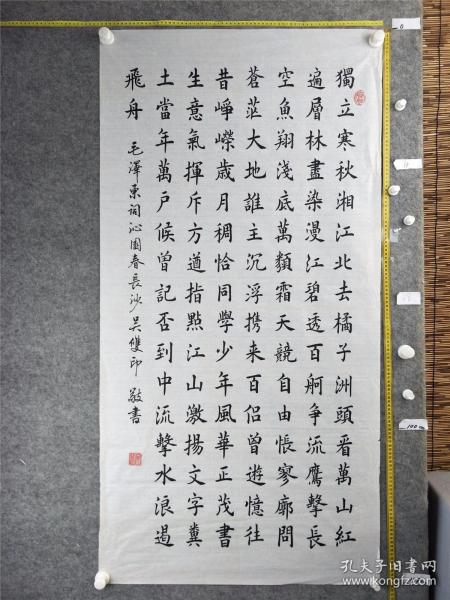 獨立寒秋湘江北去橘子洲頭看萬山紅
遍層林盡染漫江碧透百舸争流鷹擊長
空魚翔淺底萬類霜天競自由悵寥廓問
蒼茫大地誰主沉浮携来百侣曾遊憶往
昔崢嶸歲月稠恰同學少年風華正茂書
生意氣揮斥方遒指點江山激揚文字糞
土當年萬户候曾記否到中流擊水浪遏
飛舟
毛澤東詞沁園春長沙吴雙印 敬書
0
100cm
孔夫子旧書网